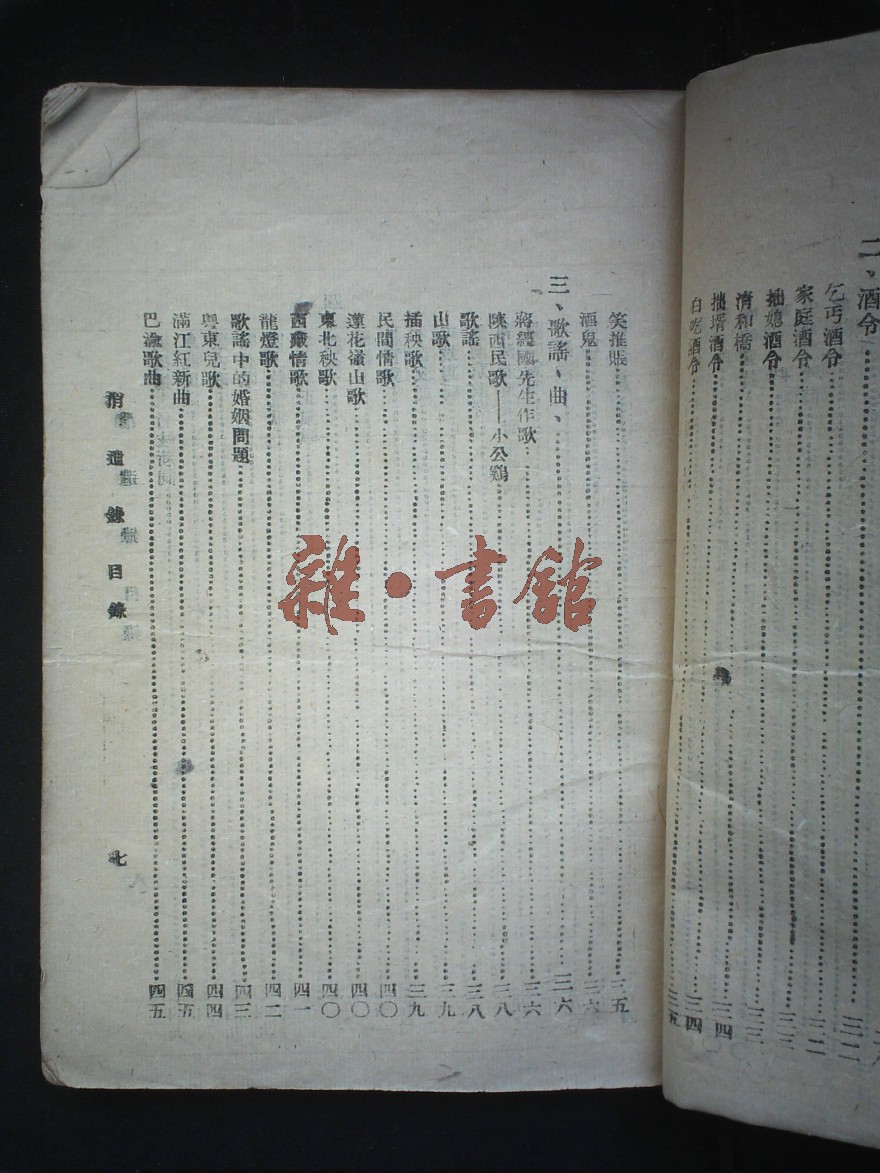 二、酒令
乞丐酒令……三二
家庭酒令……三二
拙媳酒令……三三
清和橋……三三
拙壻酒令……三四
白吃酒令……三四
三五
笑推賬……三五
酒鬼……三六
三、歌謠、曲、……三六
蔣經國先生作歌……三六
陝西民歌——小公鷄……三八
歌謠……三八
山歌……三九
插秧歌……三九
民間情歌……四〇
蓮花嶺山歌……四〇
東北秧歌……四〇
西藏情歌……四一
龍燈歌……四二
歌謠中的婚姻問題……四三
粵東兒歌……四四
滿江紅新曲……四五
巴渝歌曲……四五
消遣錄目錄
七
雜·書館